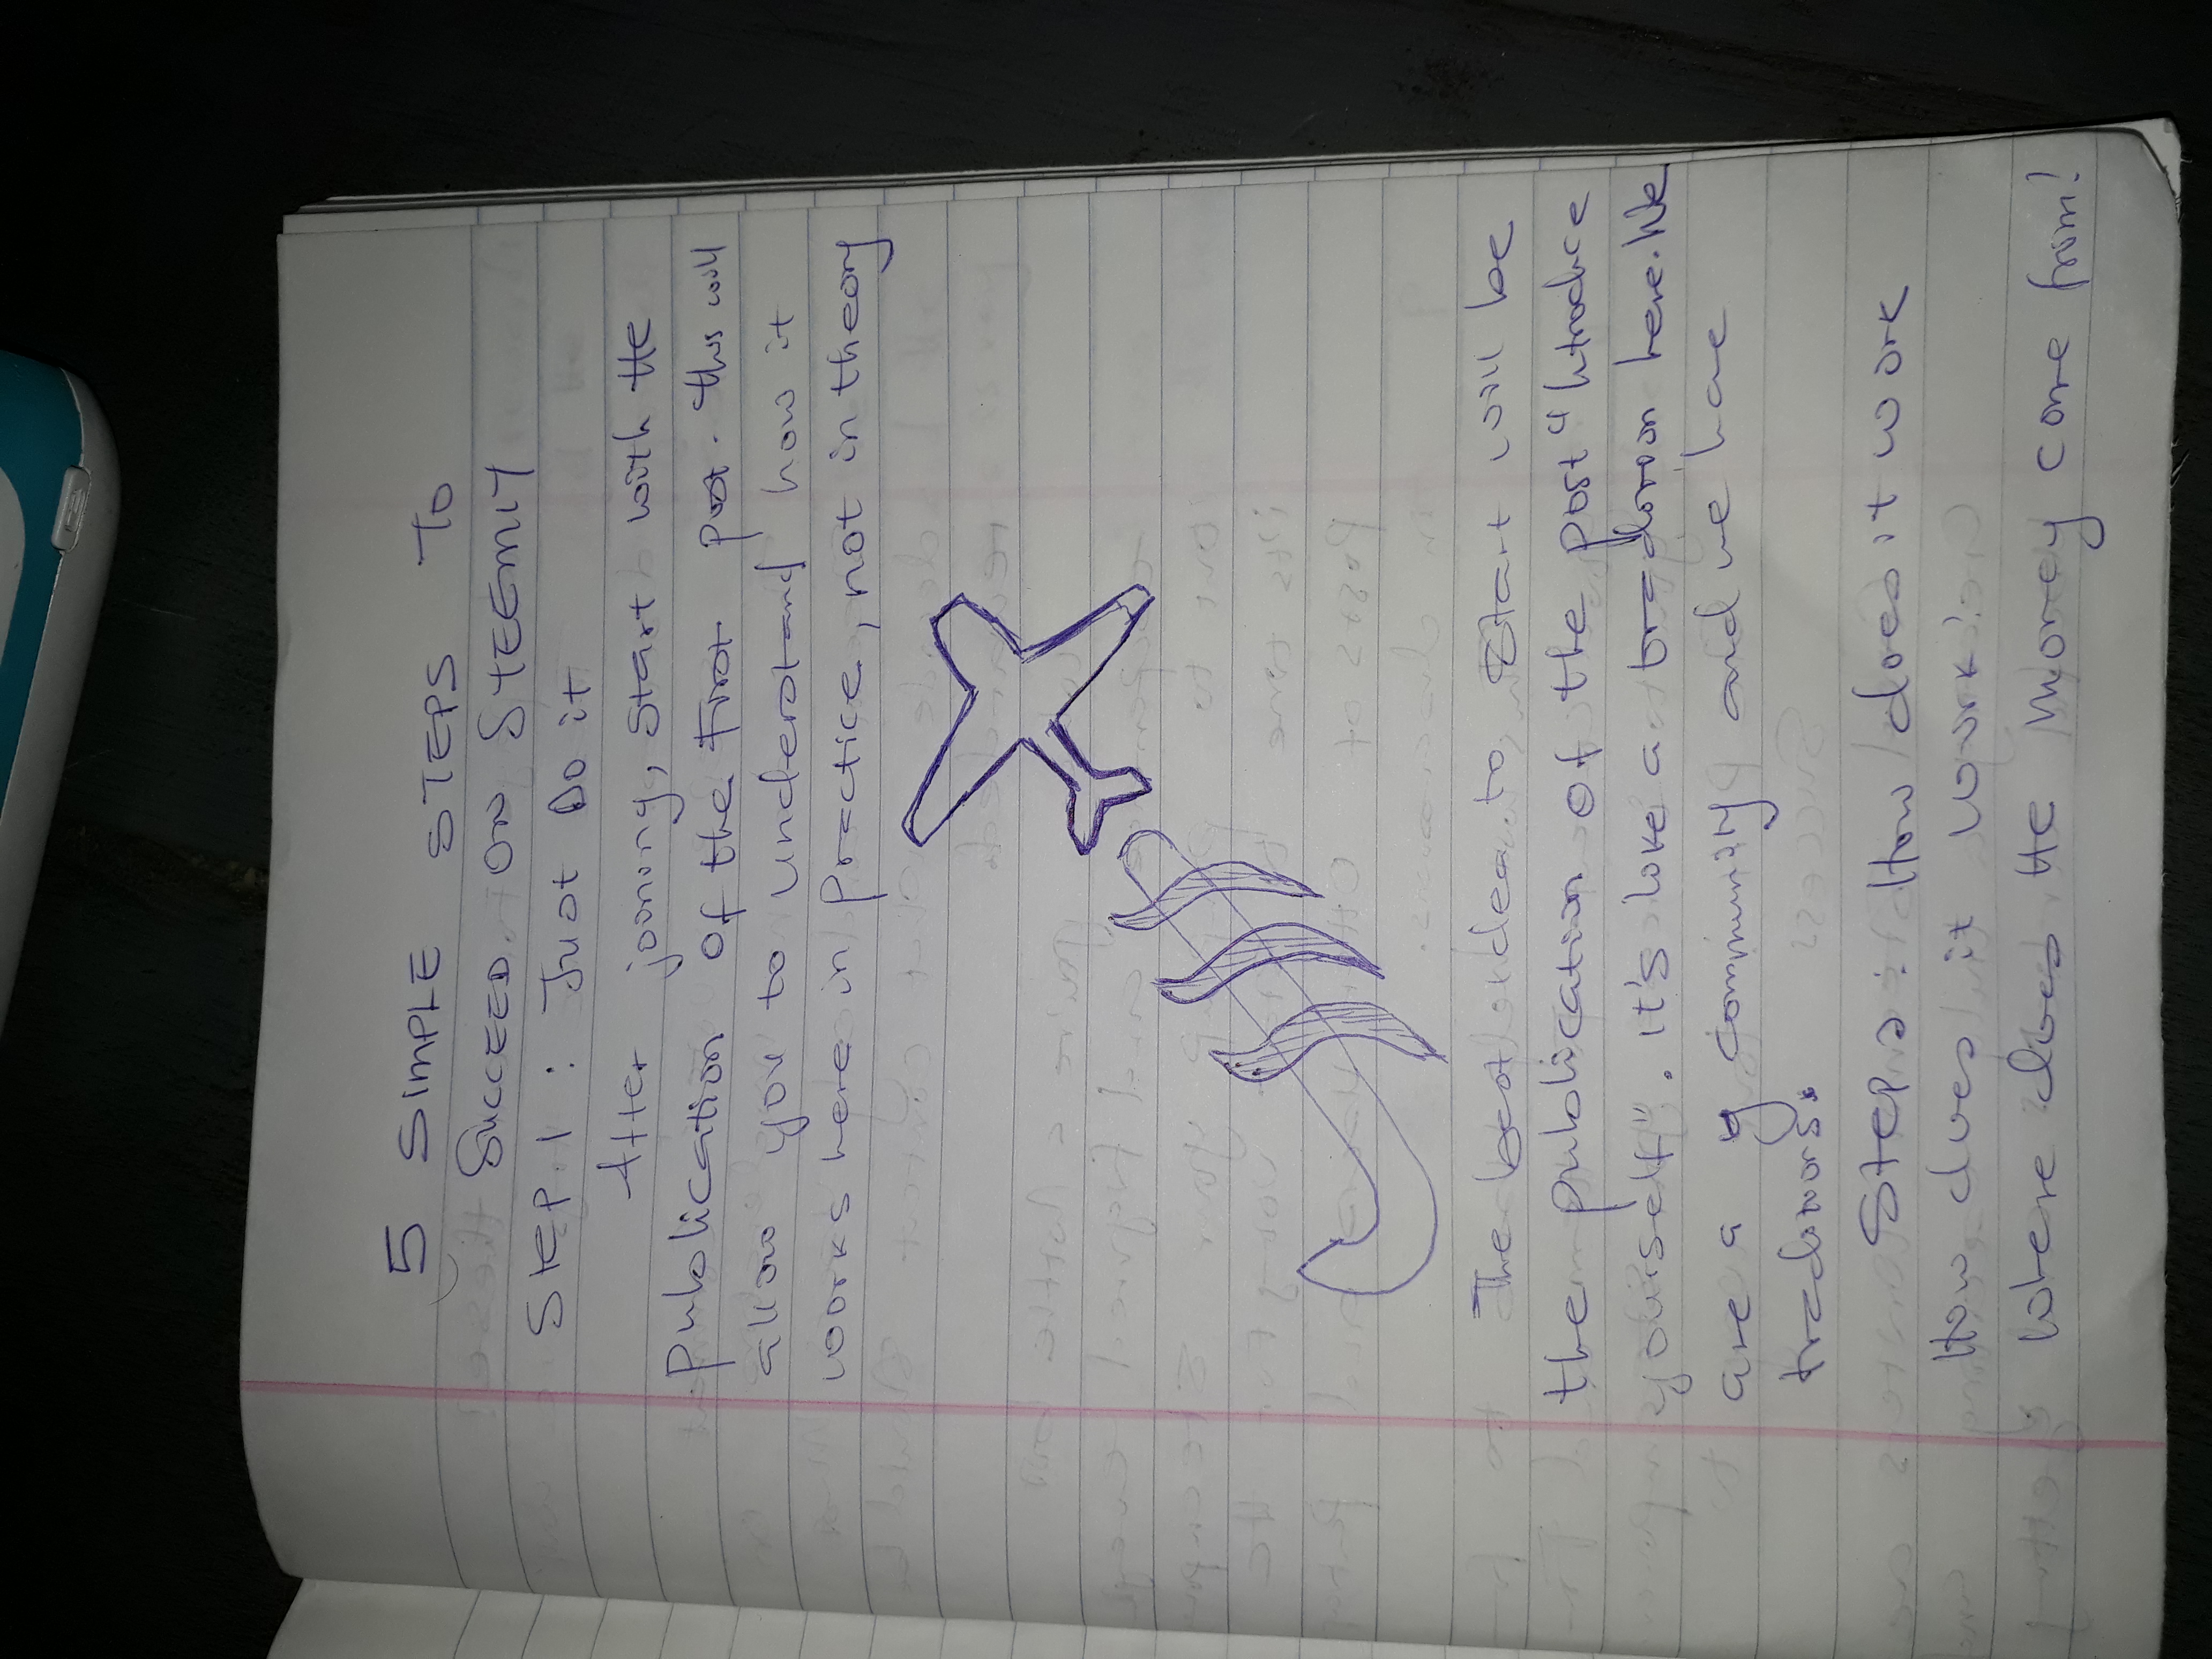 5 SIMPLE STEPS TO
SUCCEED ON STEEMIT
STEP 1 : Just Do it
After joining, start with the
publication of the First post. this will
allow you to understand how it
works here in practice, not in theory
The best idea to start will be
the publication of the post "Introduce
yourself". it's like a tradition here. We
are a community and we have
traditions.
Step 2 : How does it work
How does it work:
where does the money come from?